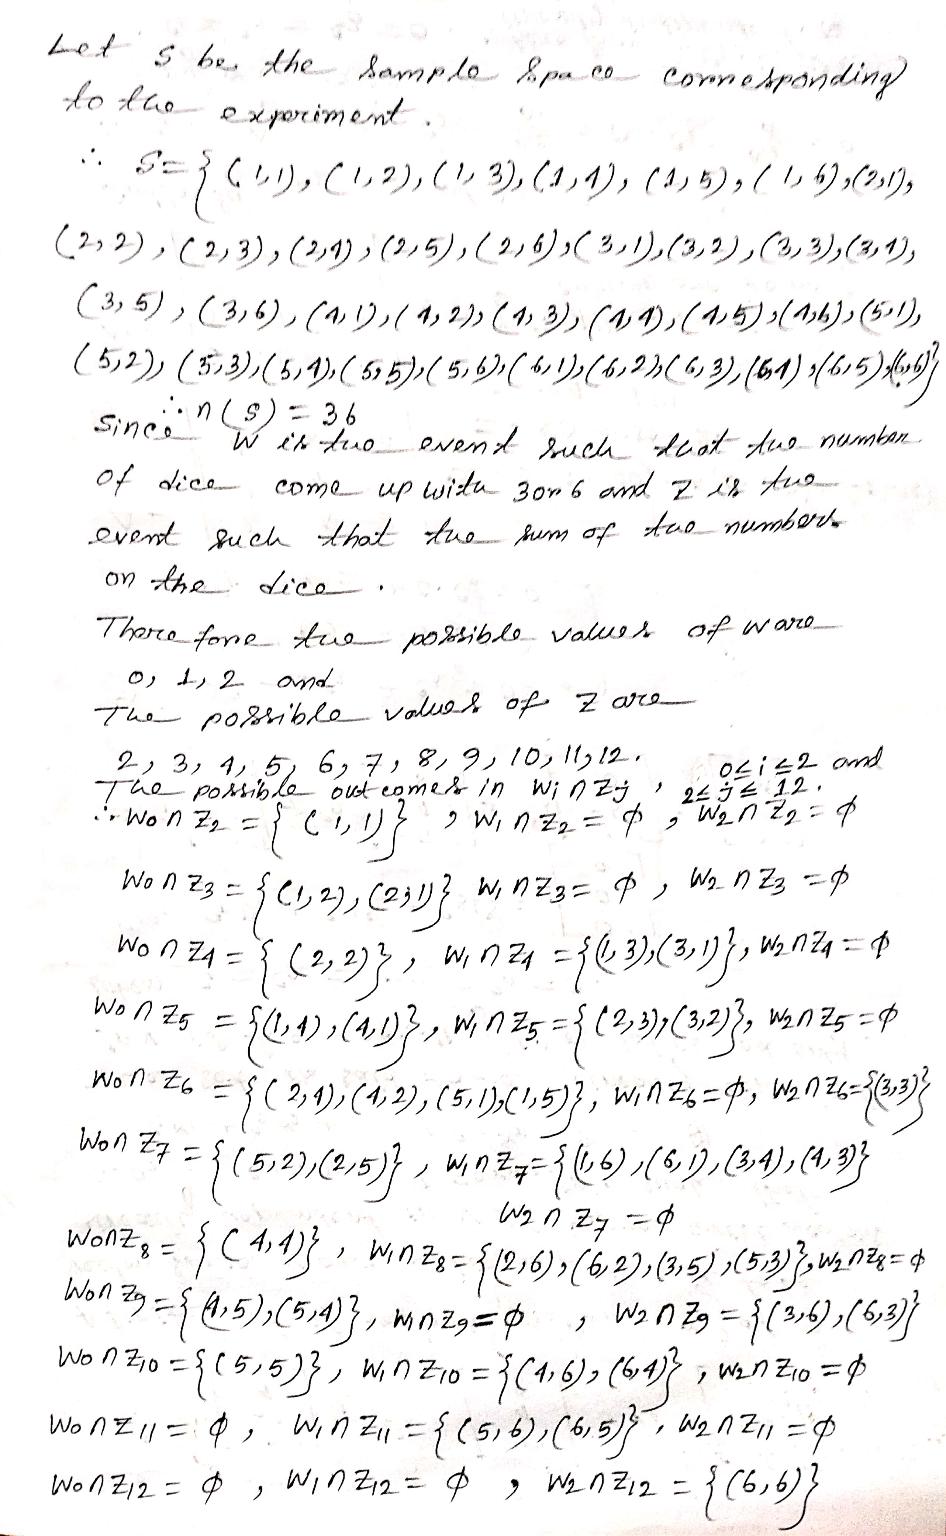 Let S be the sample space corresponding
to the experiment.
∴ S = { (1,1), (1,2), (1,3), (1,4), (1,5), (1,6), (2,1),
(2,2), (2,3), (2,4), (2,5), (2,6), (3,1), (3,2), (3,3), (3,4),
(3,5), (3,6), (4,1), (4,2), (4,3), (4,4), (4,5), (4,6), (5,1),
(5,2), (5,3), (5,4), (5,5), (5,6), (6,1), (6,2), (6,3), (6,4), (6,5), (6,6)}
∴ n(S) = 36
Since W is the event such that the number
of dice come up with 3 or 6 and Z is the
event such that the sum of the numbers
on the dice .
Therefore the possible values of W are
0, 1, 2 and
The possible values of Z are
2, 3, 4, 5, 6, 7, 8, 9, 10, 11, 12.
The possible outcomes in Wi ∩ Zj , 0≤i≤2 and 2≤j≤12.
∴ W0 ∩ Z2 = { (1,1)} , W1 ∩ Z2 = φ , W2 ∩ Z2 = φ
W0 ∩ Z3 = {(1,2), (2,1)} W1 ∩ Z3 = φ , W2 ∩ Z3 = φ
W0 ∩ Z4 = { (2,2)} , W1 ∩ Z4 = {(1,3), (3,1)}, W2 ∩ Z4 = φ
W0 ∩ Z5 = {(1,4), (4,1)} , W1 ∩ Z5 = { (2,3), (3,2)}, W2 ∩ Z5 = φ
W0 ∩ Z6 = {(2,4), (4,2), (5,1), (1,5)}, W1 ∩ Z6 = φ, W2 ∩ Z6 = {(3,3)}
W0 ∩ Z7 = {(5,2), (2,5)} , W1 ∩ Z7 = {(1,6), (6,1), (3,4), (4,3)}
W2 ∩ Z7 = φ
W0 ∩ Z8 = { (4,4)} , W1 ∩ Z8 = {(2,6), (6,2), (3,5), (5,3)}, W2 ∩ Z8 = φ
W0 ∩ Z9 = {(4,5), (5,4)}, W1 ∩ Z9 = φ , W2 ∩ Z9 = {(3,6), (6,3)}
W0 ∩ Z10 = {(5,5)} , W1 ∩ Z10 = {(4,6), (6,4)} , W2 ∩ Z10 = φ
W0 ∩ Z11 = φ , W1 ∩ Z11 = {(5,6), (6,5)} , W2 ∩ Z11 = φ
W0 ∩ Z12 = φ , W1 ∩ Z12 = φ , W2 ∩ Z12 = {(6,6)}